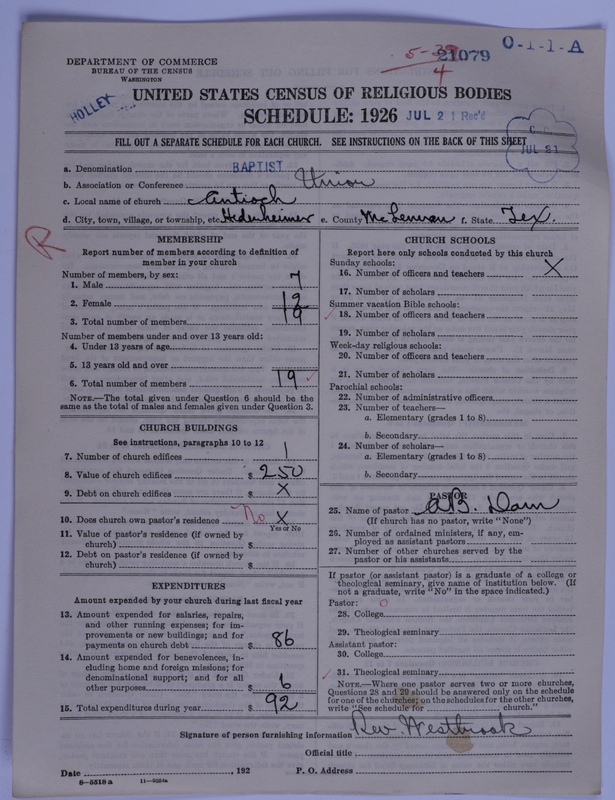 5-38
4
21079
O-1-1-A
DEPARTMENT OF COMMERCE
BUREAU OF THE CENSUS
WASHINGTON
HOLLEY
UNITED STATES CENSUS OF RELIGIOUS BODIES
SCHEDULE: 1926 JUL 21 Rec'd
FILL OUT A SEPARATE SCHEDULE FOR EACH CHURCH. SEE INSTRUCTIONS ON THE BACK OF THIS SHEET
JUL 21
a. Denomination BAPTIST
b. Association or Conference Union
c. Local name of church Antioch
d. City, town, village, or township, etc. Hedenheimer e. County McLennan f. State Tex.
R
MEMBERSHIP
Report number of members according to definition of
member in your church
Number of members, by sex:
1. Male 7
2. Female 12
3. Total number of members 19
Number of members under and over 13 years old:
4. Under 13 years of age
5. 13 years old and over
6. Total number of members 19
NOTE.—The total given under Question 6 should be the
same as the total of males and females given under Question 3.
CHURCH BUILDINGS
See instructions, paragraphs 10 to 12
7. Number of church edifices 1
8. Value of church edifices $ 250
9. Debt on church edifices $ X
10. Does church own pastor's residence No X
Yes or No
11. Value of pastor's residence (if owned by
church) $
12. Debt on pastor's residence (if owned by
church) $
EXPENDITURES
Amount expended by your church during last fiscal year
13. Amount expended for salaries, repairs,
and other running expenses; for im-
provements or new buildings; and for
payments on church debt $ 86
14. Amount expended for benevolences, in-
cluding home and foreign missions; for
denominational support; and for all
other purposes $ 6
15. Total expenditures during year $ 92
CHURCH SCHOOLS
Report here only schools conducted by this church
Sunday schools:
16. Number of officers and teachers X
17. Number of scholars
Summer vacation Bible schools:
18. Number of officers and teachers
19. Number of scholars
Week-day religious schools:
20. Number of officers and teachers
21. Number of scholars
Parochial schools:
22. Number of administrative officers
23. Number of teachers—
a. Elementary (grades 1 to 8)
b. Secondary
24. Number of scholars—
a. Elementary (grades 1 to 8)
b. Secondary
PASTOR
25. Name of pastor
(If church has no pastor, write "None")
26. Number of ordained ministers, if any, em-
ployed as assistant pastors
27. Number of other churches served by the
pastor or his assistants
If pastor (or assistant pastor) is a graduate of a college or
theological seminary, give name of institution below. (If
not a graduate, write "No" in the space indicated.)
Pastor: O
28. College
29. Theological seminary
Assistant pastor:
30. College
31. Theological seminary
NOTE.—Where one pastor serves two or more churches,
Questions 28 and 29 should be answered only on the schedule
for one of the churches; on the schedules for the other churches,
write "See schedule for church."
Signature of person furnishing information Rev. Westbrook
Official title
Date , 192 P. O. Address
8-5518a 11-9554a